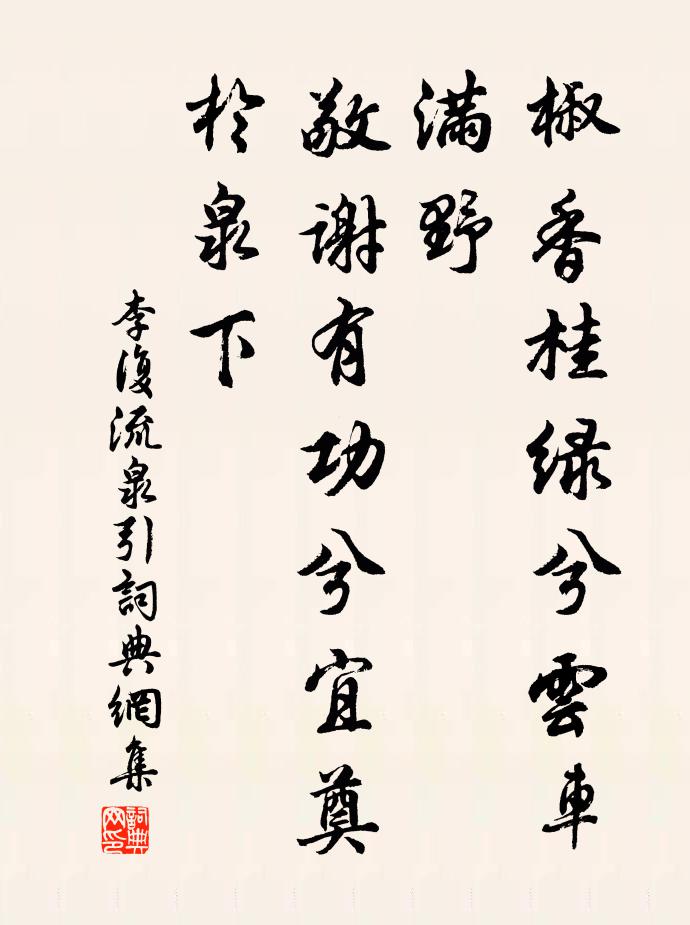 椒香桂緑兮雲車
滿野
敬謝有功兮宜奠
於泉下
李復流泉引詞典網集
詞典网印